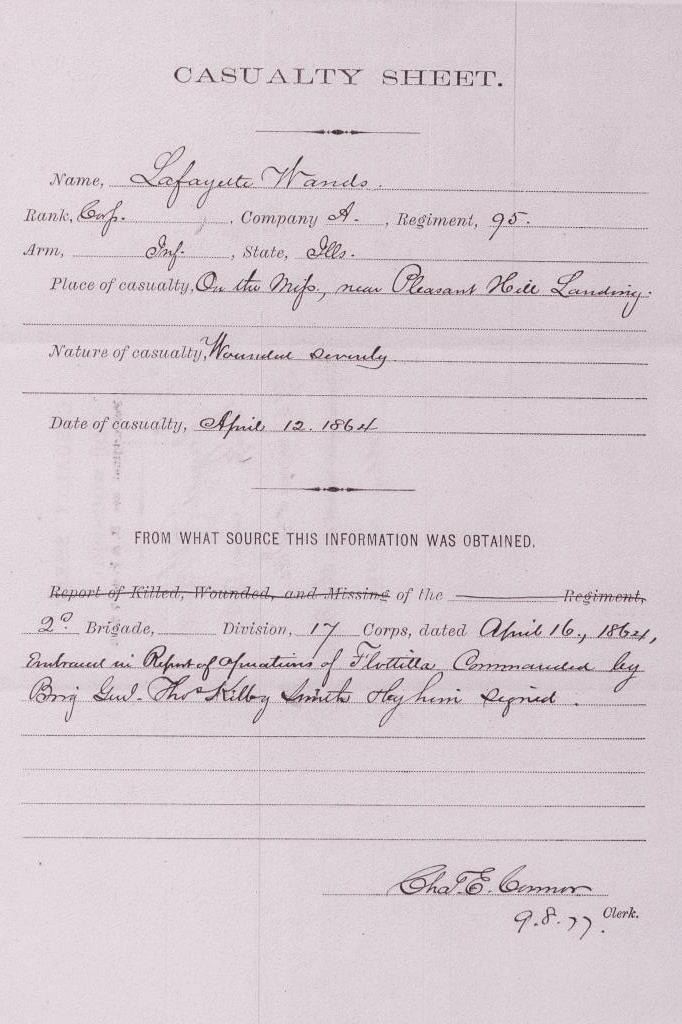 CASUALTY SHEET.
Name, Lafayette Wands.
Rank, Corp. , Company A. , Regiment, 95.
Arm, Inf. , State, Ills.
Place of casualty, On the Miss., near Pleasant Hill Landing.
Nature of casualty, Wounded severely
Date of casualty, April 12. 1864
FROM WHAT SOURCE THIS INFORMATION WAS OBTAINED.
Report of Killed, Wounded, and Missing of the Regiment,
2d Brigade, Division, 17 Corps, dated April 16, 1864,
Embraced in Report of operations of Flottilla Commanded by
Brig Genl. Thos Kilby Smith & by him signed.
Chas. E. Connor
9.8.77. Clerk.